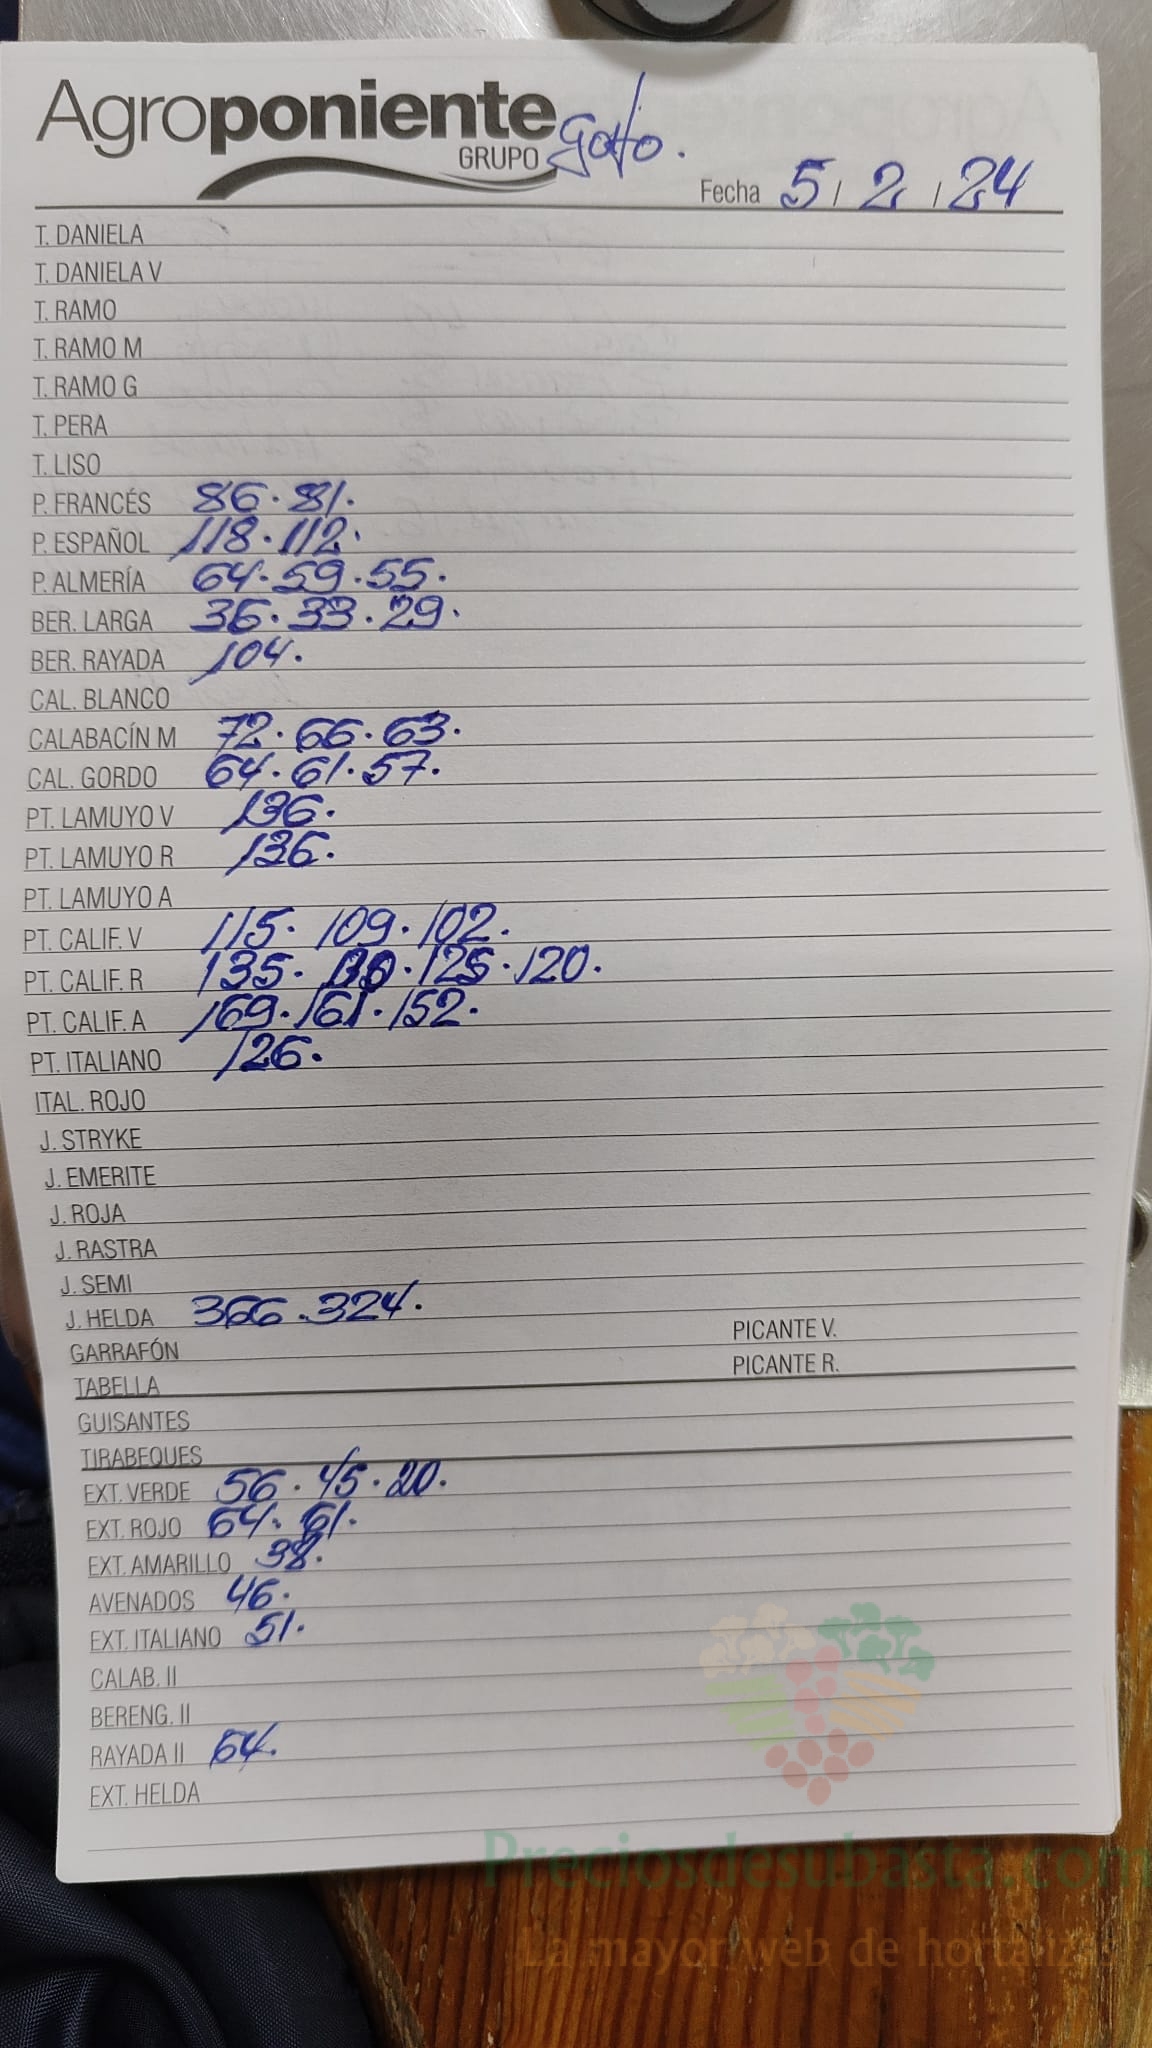 Agroponiente
GRUPO
Fecha 5 / 2 / 24
T. DANIELA
T. DANIELA V
T. RAMO
T. RAMO M
T. RAMO G
T. PERA
T. LISO
P. FRANCÉS 86. 81.
P. ESPAÑOL 118. 112.
P. ALMERÍA 64. 59. 55.
BER. LARGA 36. 33. 29.
BER. RAYADA 104.
CAL. BLANCO
CALABACÍN M 72. 66. 63.
CAL. GORDO 64. 61. 57.
PT. LAMUYO V 136.
PT. LAMUYO R 136.
PT. LAMUYO A
PT. CALIF. V 115. 109. 102.
PT. CALIF. R 135. 130. 125. 120.
PT. CALIF. A 169. 161. 152.
PT. ITALIANO 126.
ITAL. ROJO
J. STRYKE
J. EMERITE
J. ROJA
J. RASTRA
J. SEMI
J. HELDA 366. 324.
GARRAFÓN PICANTE V.
TABELLA PICANTE R.
GUISANTES
TIRABEQUES
EXT. VERDE 56. 45. 20.
EXT. ROJO 64. 61.
EXT. AMARILLO 38.
AVENADOS 46.
EXT. ITALIANO 51.
CALAB. II
BERENG. II
RAYADA II 64.
EXT. HELDA
Preciosdesubasta.com
La mayor web de hortaliz